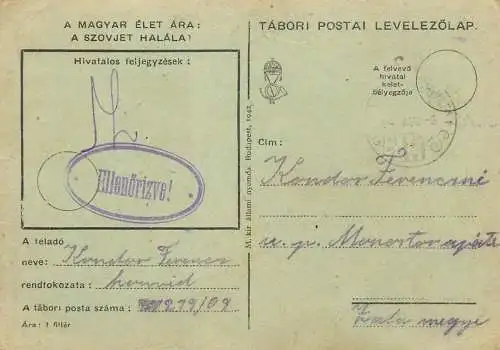 A MAGYAR ÉLET ÁRA:
A SZOVJET HALÁLA!
Hivatalos feljegyzések:
Ellenőrizve!
A feladó
neve: Kondor Ferenc
rendfokozata: honvéd
A tábori posta száma: 219/09
Ára: 1 fillér
M. kir. állami nyomda. Budapest, 1942.
TÁBORI POSTAI LEVELEZŐLAP.
A felvevő
hivatal
kelet-
bélyegzője
Cím:
Kondor Ferencné
u. p. Monostorapáti
Zala megye